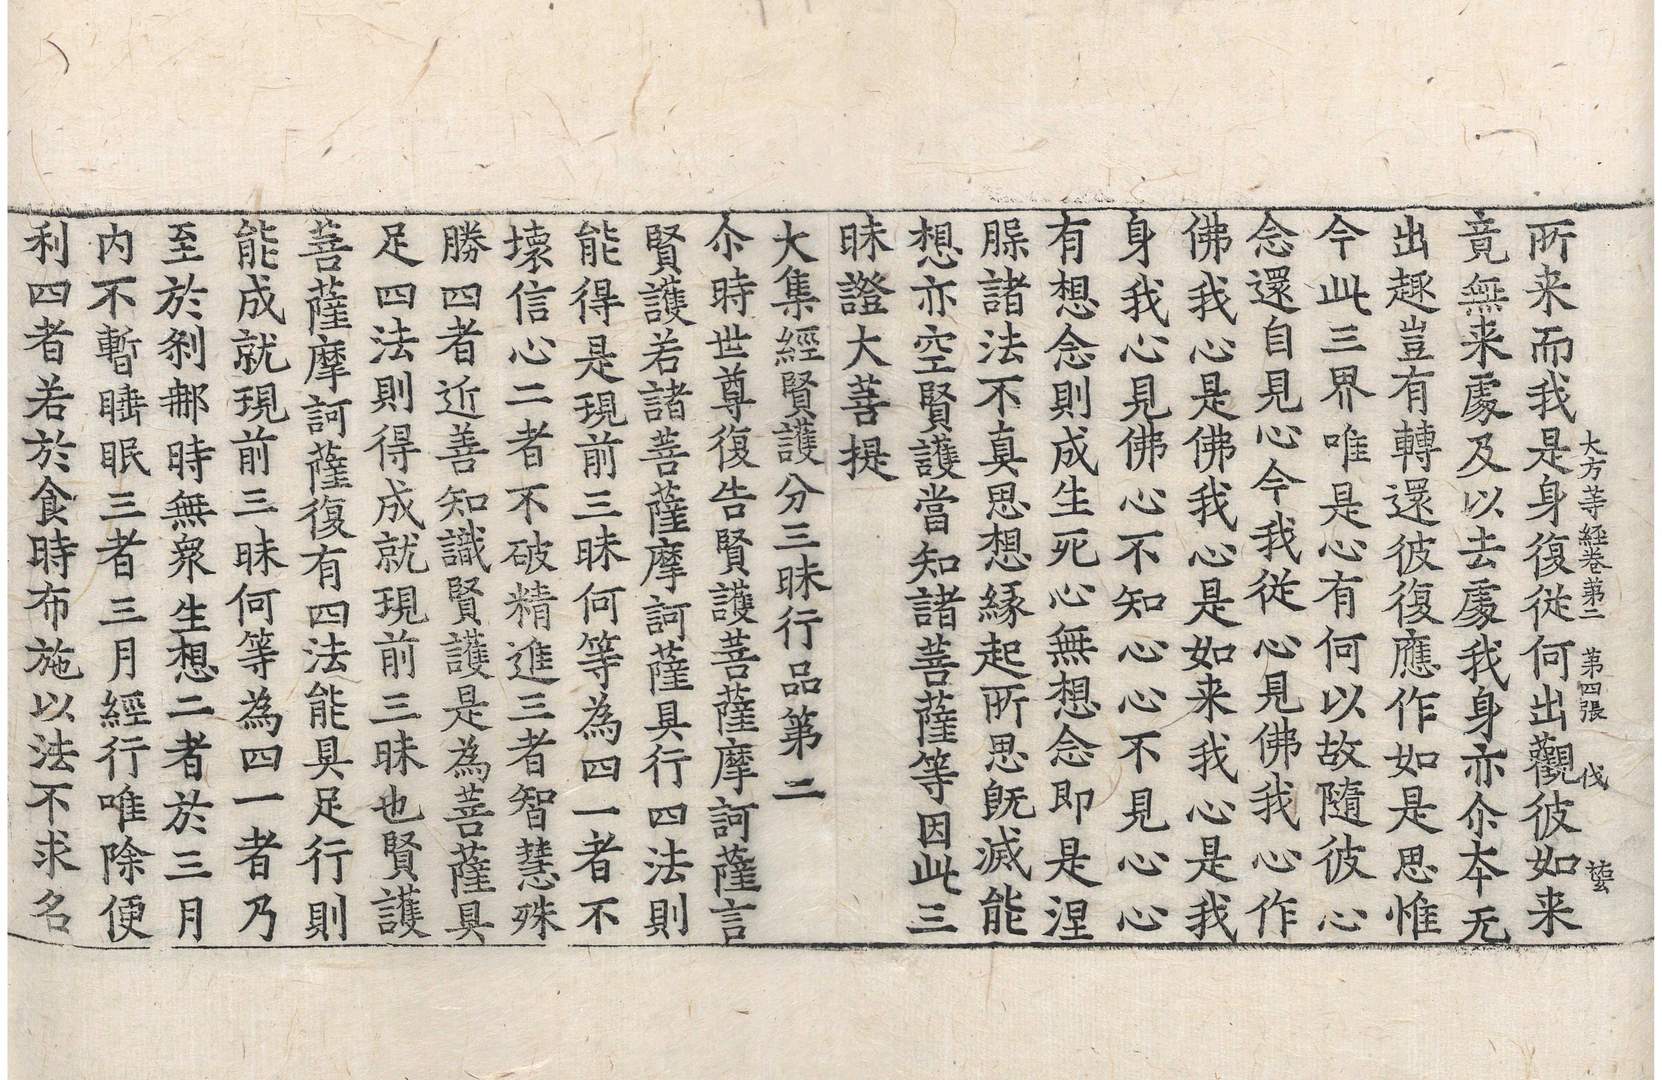 大方等大集經卷第二　第四張　伐
所来而我是身復從何出觀彼如来
竟無来處及以去處我身亦尒本无
出趣豈有轉還彼復應作如是思惟
今此三界唯是心有何以故隨彼心
念還自見心今我從心見佛我心作
佛我心是佛我心是如来我心是我
身我心見佛心不知心心不見心心
有想念則成生死心無想念即是涅
脲諸法不真思想緣起所思旣滅能
想亦空賢護當知諸菩薩等因此三
昧證大菩提
大集經賢護分三昧行品第二
尒時世尊復告賢護菩薩摩訶薩言
賢護若諸菩薩摩訶薩具行四法則
能得是現前三昧何等為四一者不
壞信心二者不破精進三者智慧殊
勝四者近善知識賢護是為菩薩具
足四法則得成就現前三昧也賢護
菩薩摩訶薩復有四法能具足行則
能成就現前三昧何等為四一者乃
至於刹那時無衆生想二者於三月
内不暫睡眠三者三月經行唯除便
利四者若於食時布施以法不求名